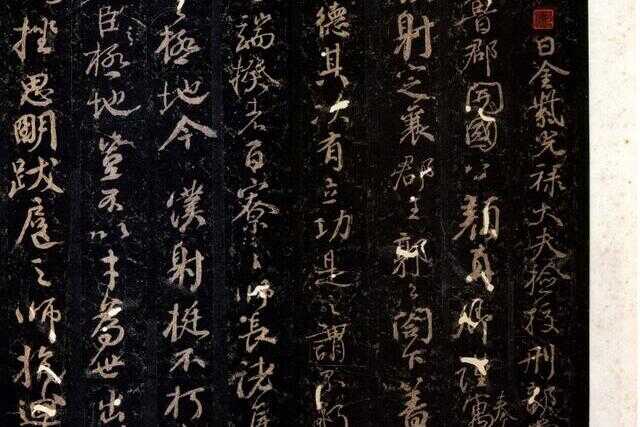 日金紫光祿大夫檢校刑部
魯郡開國公顏真卿謹寓
射定襄郡王郭公閣下蓋
德其次有立功是之謂不朽
端揆者百寮之師長諸侯
極地今僕射挺不朽
臣極地豈不以才為世出
挫思明跋扈之師抗迴